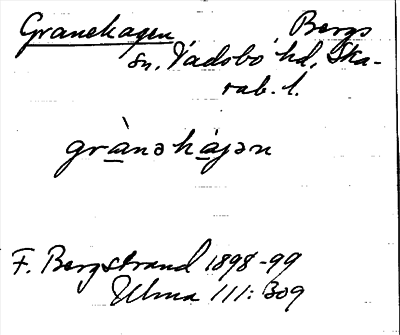 Granehagen, Bergs
sn, Vadsbo hd, Ska-
rab. l.
grànəhájən
F. Bergstrand 1898-99
Ulma 111:309